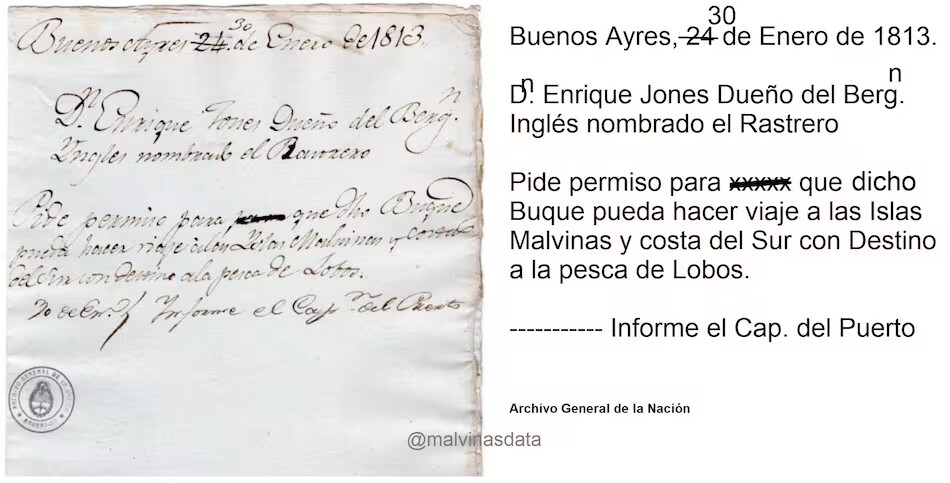 Buenos Ayres 24 30 de Enero de 1813.
Dn. Enrique Jones Dueño del Bergn.
Ingles nombrado el
Pide permiso para que dho Buque
pueda hacer viaje a las Islas Malvinas y costa
del Sur con destino a la pesca de Lobos.
30 de En.o Informe el Cap.n del Puerto
ARCHIVO GENERAL DE LA
@malvinasdata
Buenos Ayres, 24 30 de Enero de 1813.
Dn. Enrique Jones Dueño del Bergn.
Inglés nombrado el Rastrero
Pide permiso para xxxxx que dicho
Buque pueda hacer viaje a las Islas
Malvinas y costa del Sur con Destino
a la pesca de Lobos.
----------- Informe el Cap. del Puerto
Archivo General de la Nación